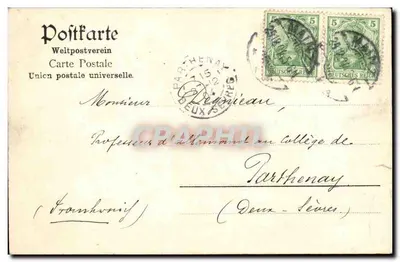 Postkarte
Weltpostverein
Carte Postale
Union postale universelle.
5 5
DEUTSCHES REICH
PARTHENAY
DEUX-SEVRES
Monsieur
Professeur d'allemand au Collège de
Parthenay
(Frankreich) (Deux-Sèvres)